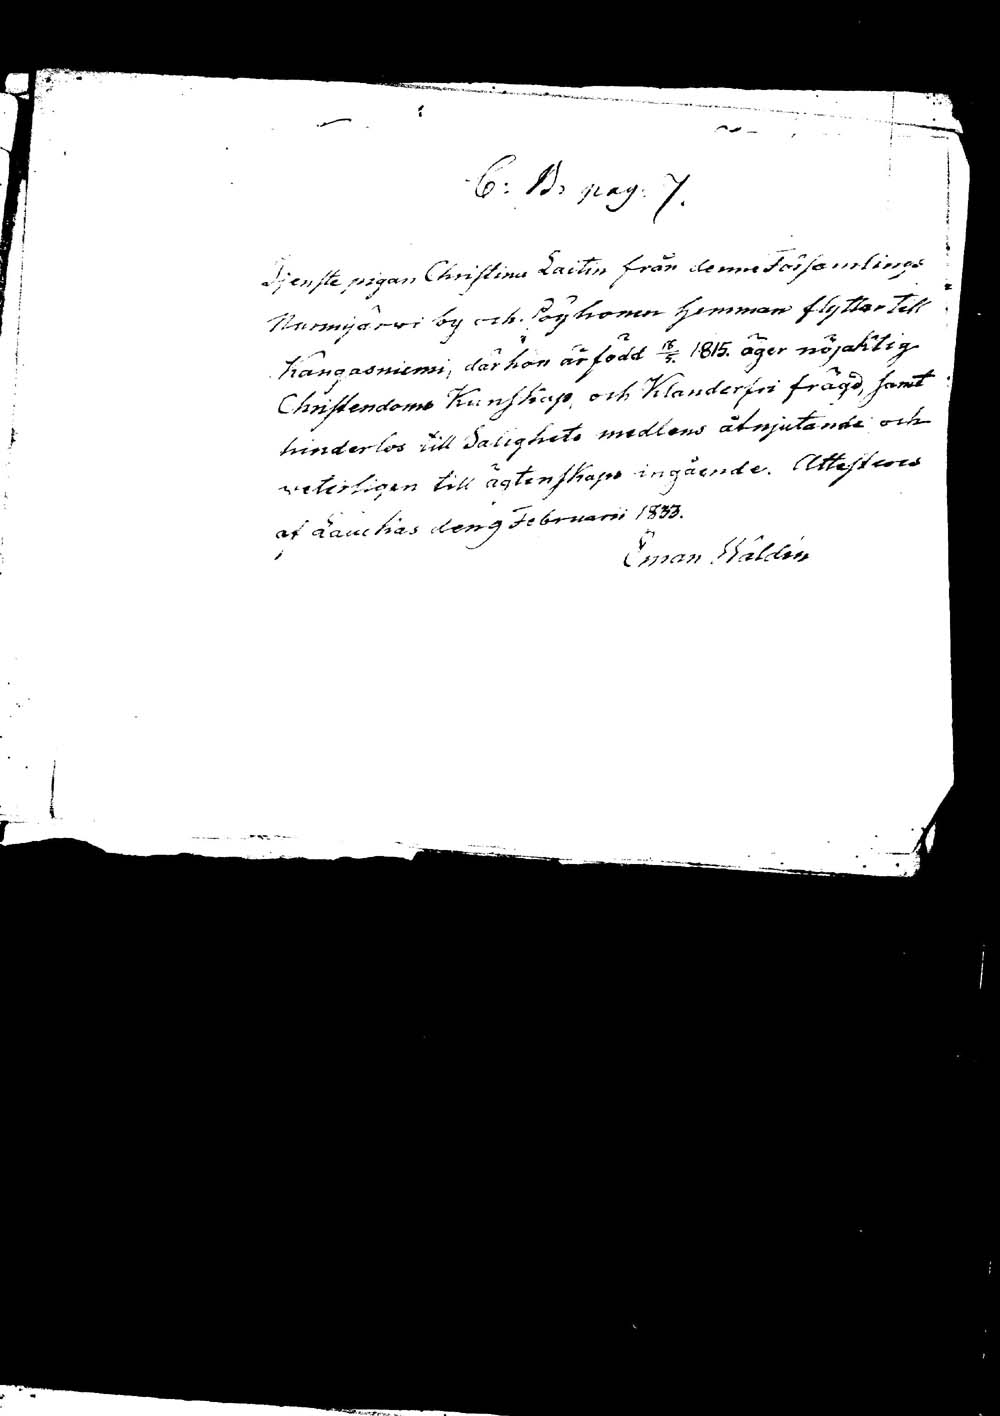 C: B: pag. 7.
Djenste pigan Christina Laitin från denne Församlings
Nurmijärwi by och Pöyhönen Hemman flyttar till
Kangasniemi, där hon är född 18/5. 1815. äger nöjaktig
Christendoms Kunskap, och Klanderfri frägd, samt
hinderlös till Salighets medlens åtnjutande och
veterligen till ägtenskaps ingående. Attesteras
af Lauckas den 9 Februarii 1833.
Eman Wäldin